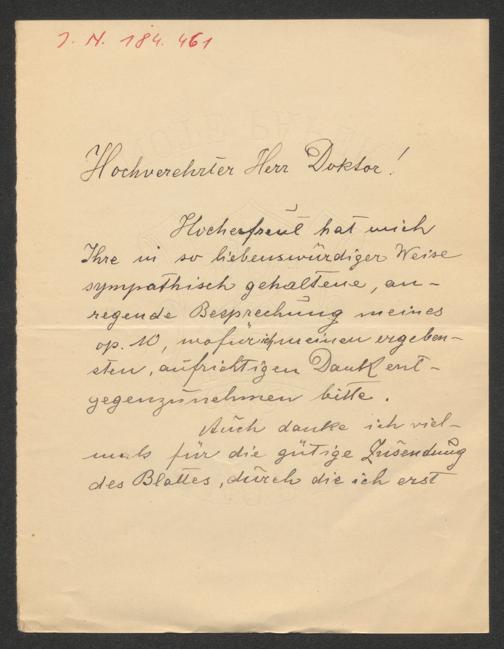 J. N. 184.461
Hochverehrter Herr Doktor!
Hocherfreut hat mich
Ihre in so liebenswürdiger Weise
sympathisch gehaltene, an-
regende Besprechung meines
op. 10, wofür ich meinen ergeben-
sten, aufrichtigen Dank ent-
gegenzunehmen bitte.
Auch danke ich viel-
mals für die gütige Zusendung
des Blattes, durch die ich erst